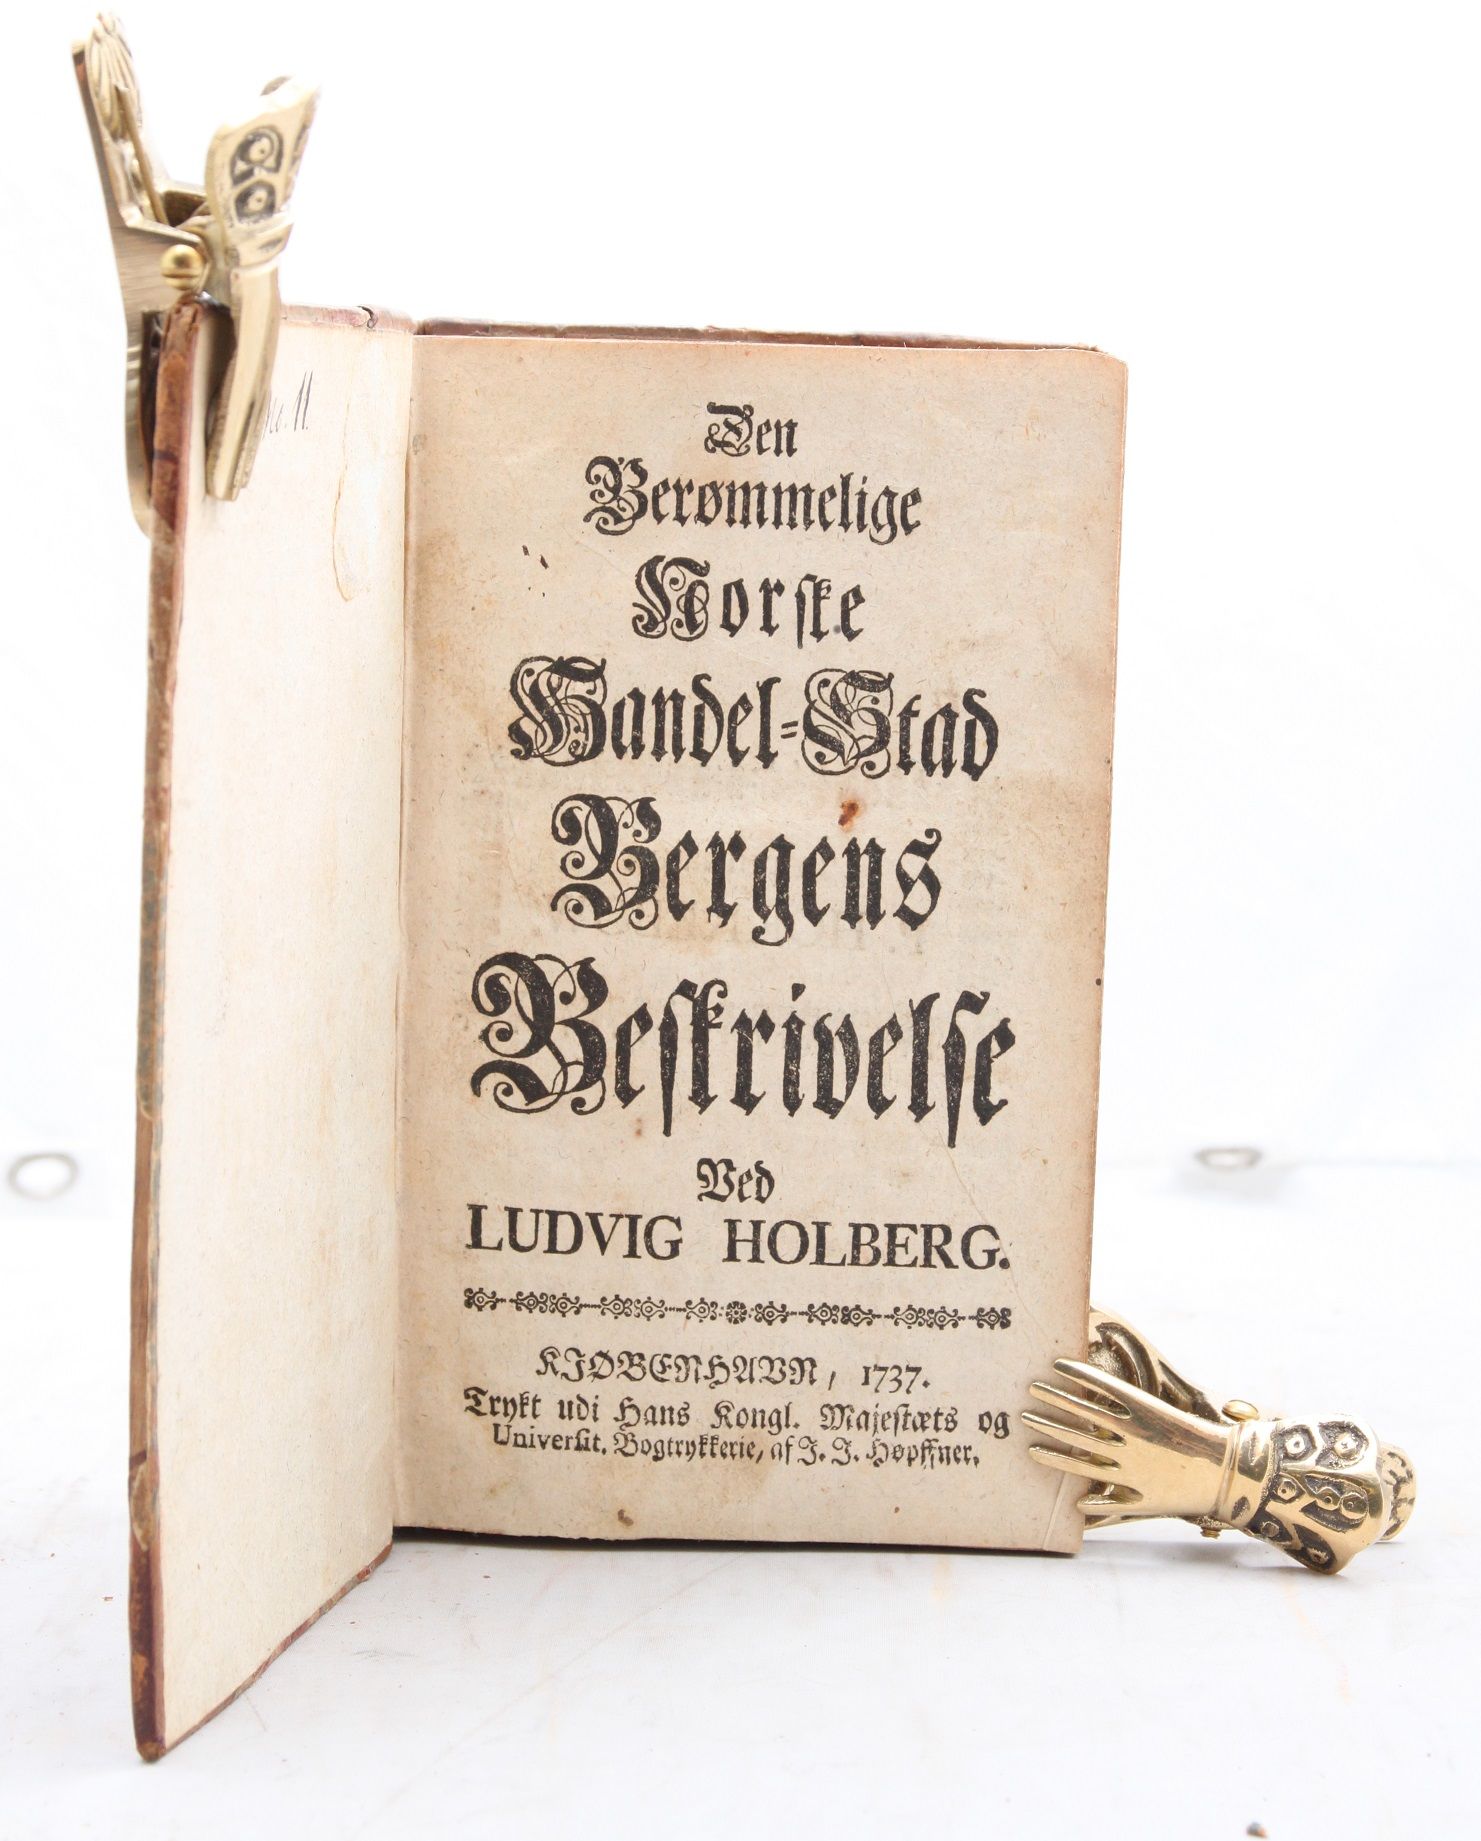 Den
Berømmelige
Norske
Handel=Stad
Bergens
Beskrivelse
Ved
LUDVIG HOLBERG.
KIØBENHAVN, 1737.
Trykt udi Hans Kongl. Majestæts og
Universit. Bogtrykkerie, af J. J. Høpffner.